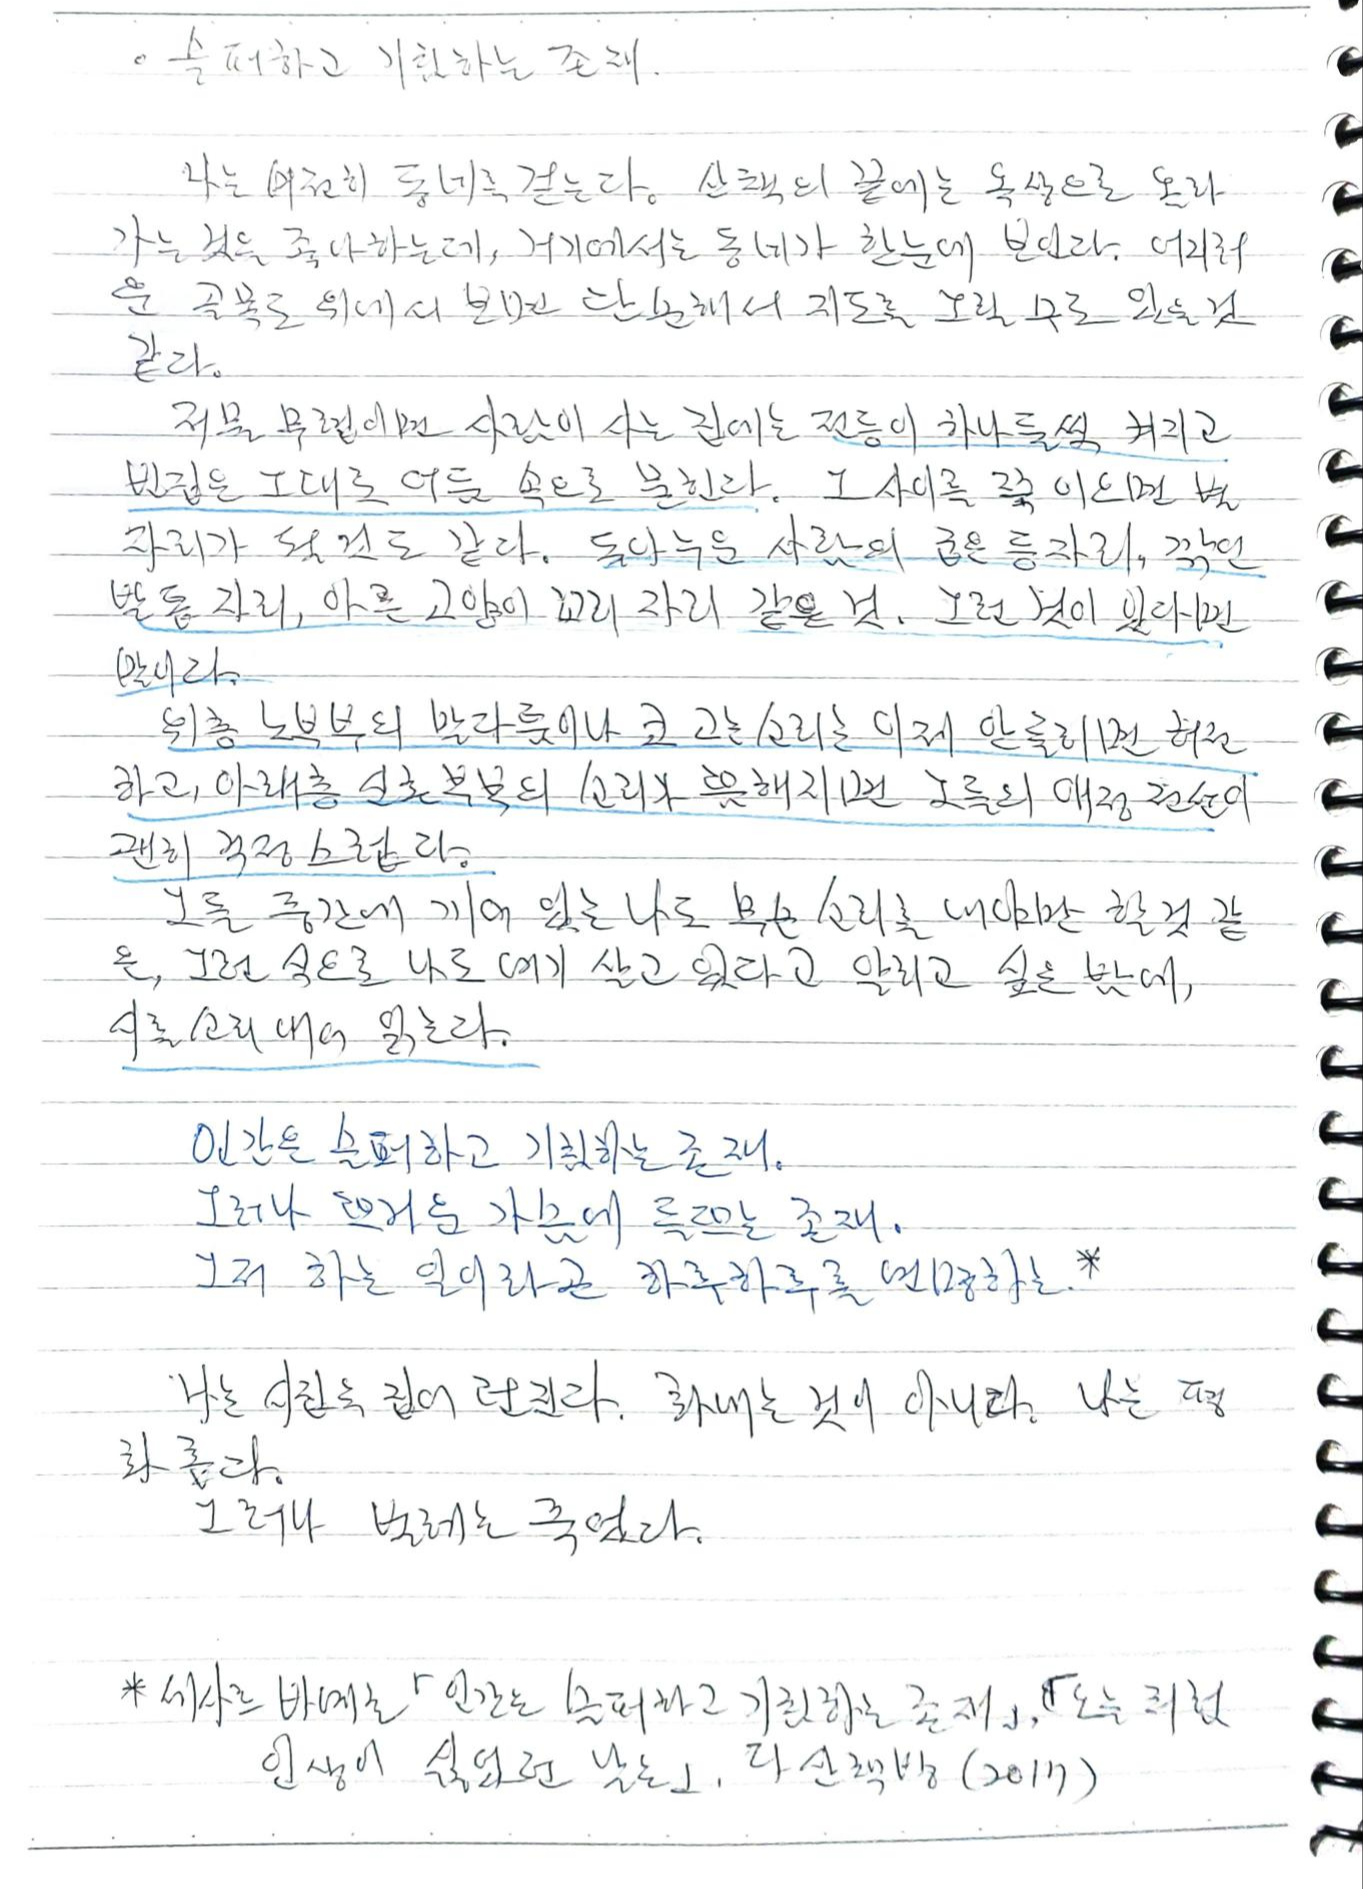 ◦ 슬퍼하고 기침하는 존재.
나는 여전히 동네를 걷는다. 산책의 끝에는 옥상으로 올라
가는 것을 좋아하는데, 거기에서는 동네가 한눈에 보인다. 어지러
운 골목도 위에서 보면 단순해서 지도를 그릴 수도 있을 것
같다.
저물 무렵이면 사람이 사는 집에는 전등이 하나둘씩 켜지고
빈집은 그대로 어둠 속으로 묻힌다. 그 사이를 죽 이으면 별
자리가 될 것도 같다. 돌아누운 사람의 굽은 등자리, 깎인
발톱 자리, 아픈 고양이 꼬리 자리 같은 것. 그런 것이 있다면
말이다.
위층 노부부의 말다툼이나 코 고는 소리는 이제 안 들리면 허전
하고, 아래층 신혼부부의 소리가 뜸해지면 그들의 애정 전선이
괜히 걱정스럽다.
그들 중간에 끼어 있는 나도 무슨 소리를 내야만 할 것 같
은, 그런 식으로 나도 여기 살고 있다고 알리고 싶은 밤에,
시를 소리 내어 읽는다.
인간은 슬퍼하고 기침하는 존재.
그러나 뜨거운 가슴에 들뜨는 존재.
그저 하는 일이라곤 하루하루를 연명하는.*
나는 시집을 집어 던진다. 화내는 것이 아니다. 나는 평
화롭다.
그러나 벌레는 죽었다.
* 세사르 바예호 「인간은 슬퍼하고 기침하는 존재」, 『오늘처럼
인생이 싫었던 날은』, 다산책방 (2017)